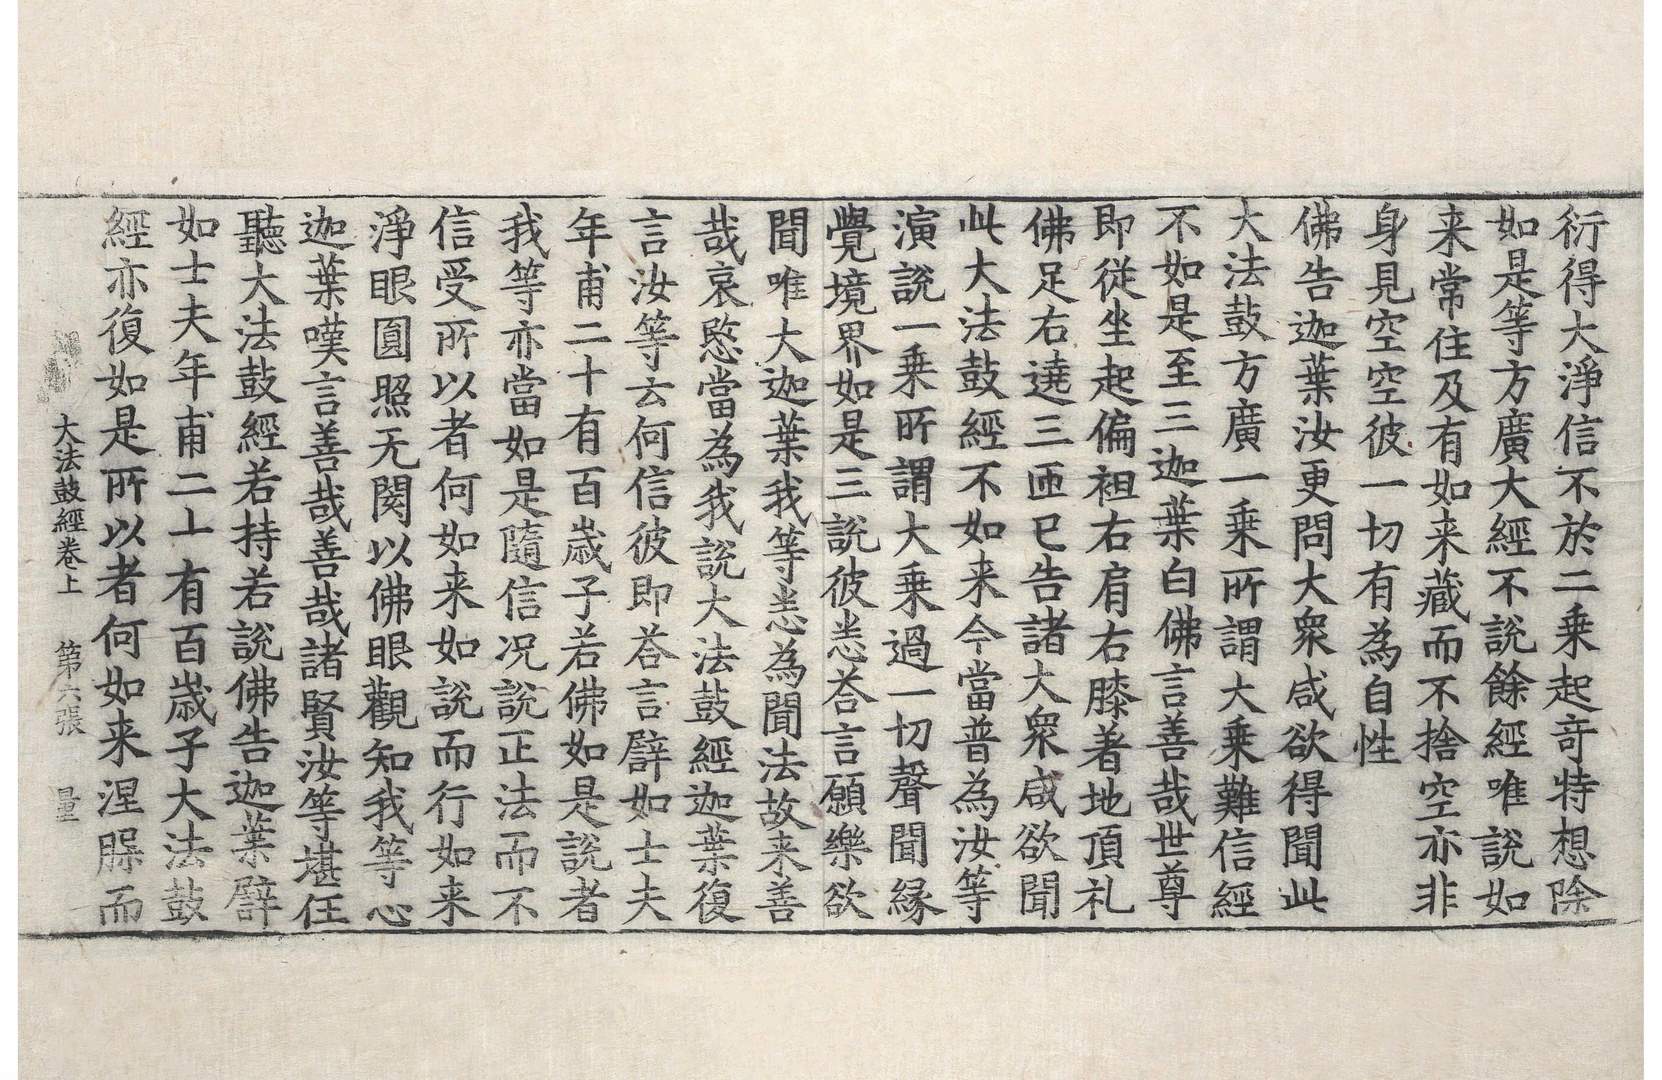 衍得大淨信不於二乗起竒特想除
如是等方廣大經不說餘經唯說如
来常住及有如来藏而不捨空亦非
身見空空彼一切有為自性
佛告迦葉汝更問大衆咸欲得聞此
大法鼓方廣一乗所謂大乗難信經
不如是至三迦葉白佛言善哉世尊
即從坐起偏袒右肩右膝著地頂礼
佛足右遶三匝已告諸大衆咸欲聞
此大法鼓經不如来今當普為汝等
演說一乗所謂大乗過一切聲聞縁
覺境界如是三說彼悉荅言願樂欲
聞唯大迦葉我等悉為聞法故来善
哉哀愍當為我說大法鼓經迦葉復
言汝等云何信彼即荅言譬如士夫
年甫二十有百歳子若佛如是說者
我等亦當如是隨信况說正法而不
信受所以者何如来如說而行如来
淨眼圓照无閡以佛眼觀知我等心
迦葉嘆言善哉善哉諸賢汝等堪任
聽大法鼓經若持若說佛告迦葉譬
如士夫年甫二十有百歳子大法鼓
經亦復如是所以者何如来涅槃而
大法鼓經卷上　第六張　量